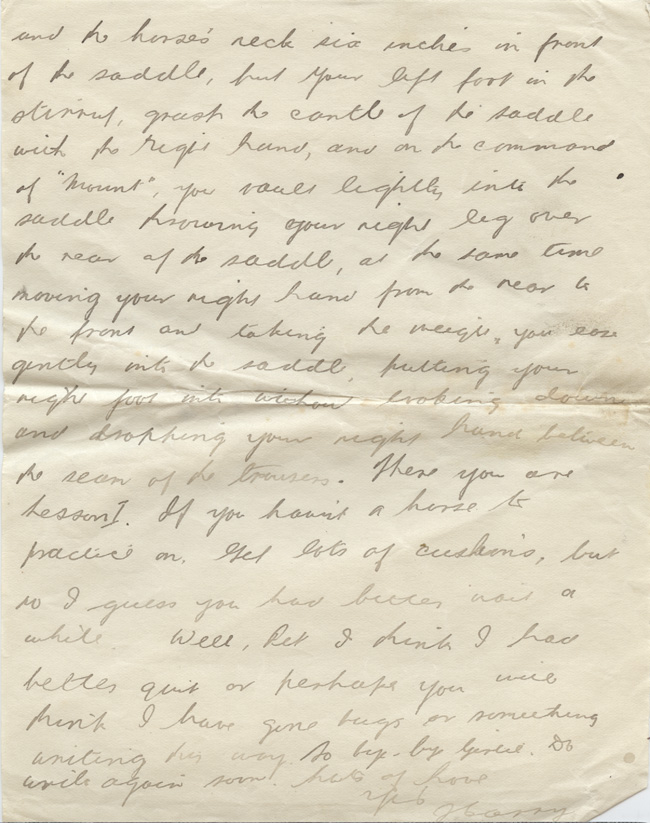 and the horse's neck six inches in front
of the saddle, put your left foot in the
stirrup, grasp the cantle of the saddle
with the right hand, and on the command
of "Mount", you vault lightly into the
saddle throwing your right leg over
the rear of the saddle, at the same time
moving your right hand from the rear to
the front and taking the weight, you ease
gently into the saddle, putting your
right foot into without looking down
and dropping your right hand between
the seam of the trousers. There you are
Lesson I. If you havn't a horse to
practice on. Get lots of cushions, but
no I guess you had better wait a
while. Well, Pet I think I had
better quit or perhaps you will
think I have gone bugs or something
writing this way. So bye-bye Girlie. Do
write again soon. Lots of love
Harry